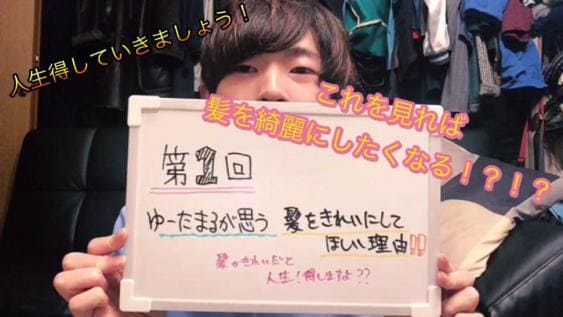 人生得していきましょう！
これを見れば
髪を綺麗にしたくなる！？！？
第1回
ゆーたまるが思う 髪をきれいにして
ほしい理由!!
髪がきれいだと
人生！得しますよ??